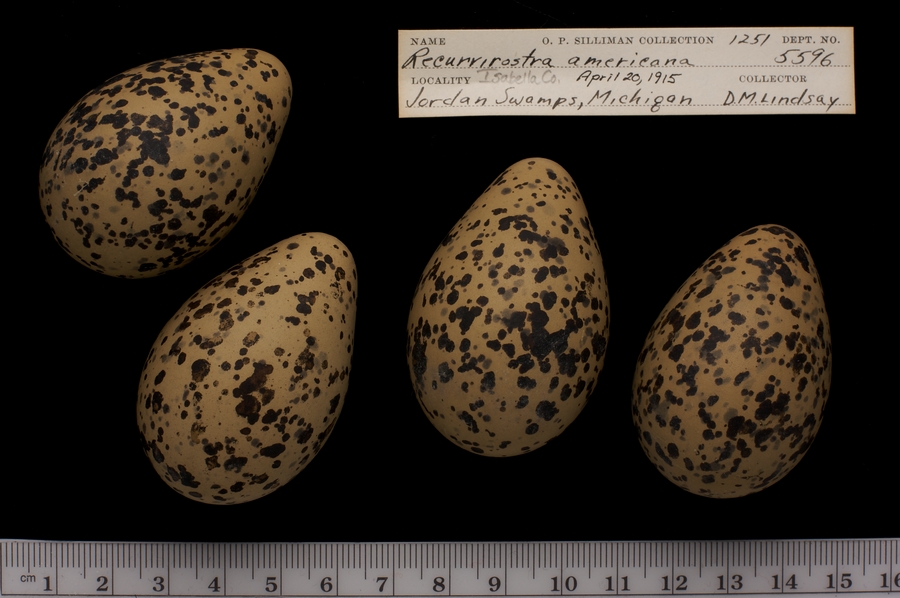 NAME O. P. SILLIMAN COLLECTION 1251 DEPT. NO.
Recurvirostra americana 5596
LOCALITY Isabella Co. April 20, 1915 COLLECTOR
Jordan Swamps, Michigan D.M. Lindsay
cm 1 2 3 4 5 6 7 8 9 10 11 12 13 14 15 16